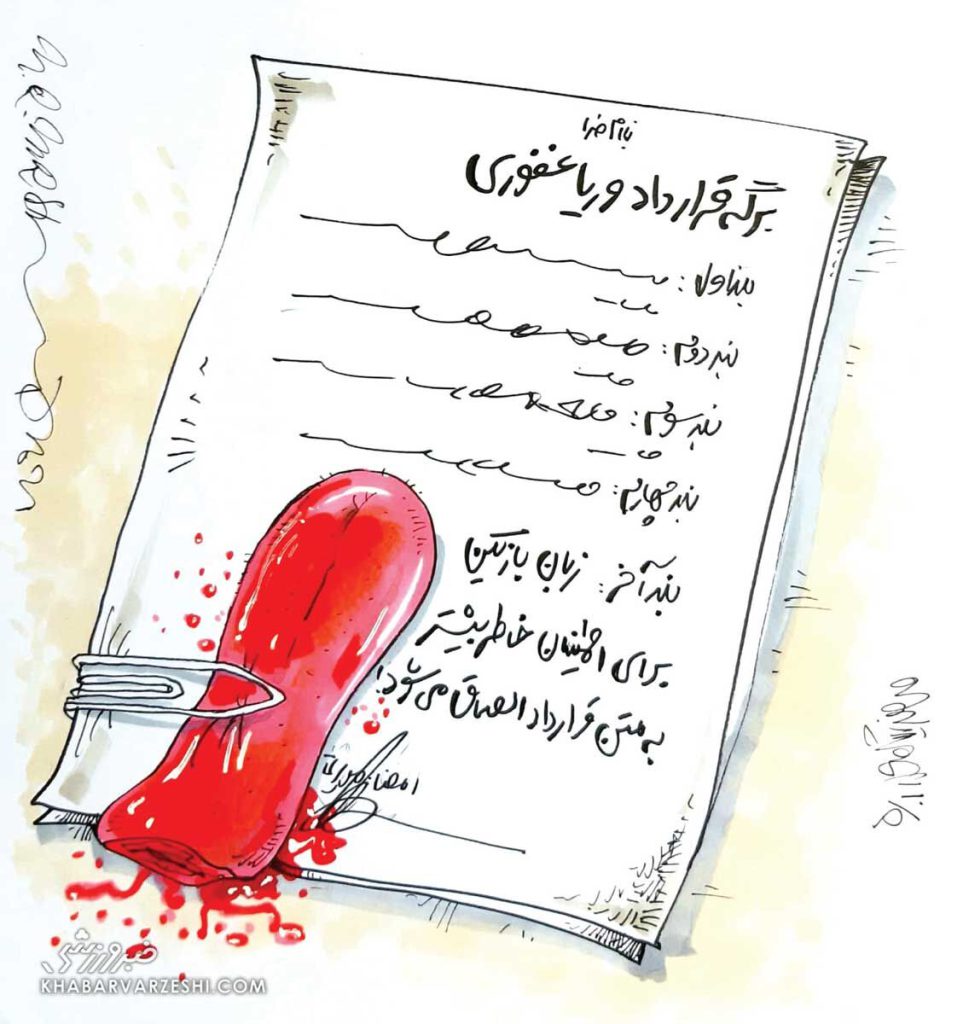 بنام خدا
برگه قرارداد وریا غفوری
بند اول:
بند دوم:
بند سوم:
بند چهارم:
بند آخر: زبان بازیکن
برای اطمینان خاطر بیشتر
به متن قرارداد الصاق می‌شود!
امضا مدیریت
خبرورزشی
KHABARVARZESHI.COM